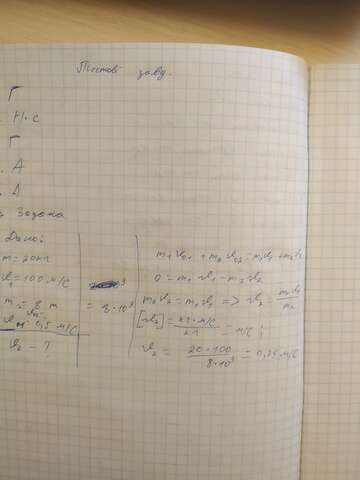 Тестові завд.
Г
Н·с
Г
А
А
Задача
Дано:
m = 20кг
v₁ = 100 м/с
m = 8 т = 8·10³
0,5 м/с
v₂ - ?
m₁v₀₁ + m₂v₀₂ = m₁v₁ + m₂v₂
0 = m₁v₁ - m₂v₂
m₂v₂ = m₁v₁ => v₂ = m₁v₁/m₂
[v₂] = кг·м/с / кг = м/с ;
v₂ = 20·100 / 8·10³ = 0,25 м/с